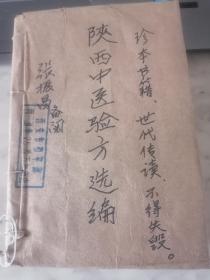 珍本书籍、世代传读、不得失毁。
陕西中医验方选编
张振昌
备阅